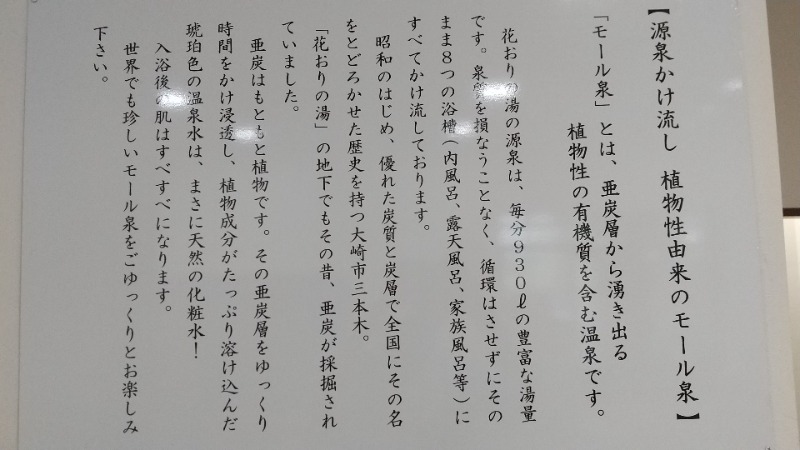 【源泉かけ流し 植物性由来のモール泉】
「モール泉」とは、亜炭層から湧き出る
植物性の有機質を含む温泉です。
花おりの湯の源泉は、毎分930ℓの豊富な湯量
です。泉質を損なうことなく、循環はさせずにその
まま8つの浴槽（内風呂、露天風呂、家族風呂等）に
すべてかけ流しております。
昭和のはじめ、優れた炭質と炭層で全国にその名
をとどろかせた歴史を持つ大崎市三本木。
「花おりの湯」の地下でもその昔、亜炭が採掘され
ていました。
亜炭はもともと植物です。その亜炭層をゆっくり
時間をかけ浸透し、植物成分がたっぷり溶け込んだ
琥珀色の温泉水は、まさに天然の化粧水！
入浴後の肌はすべすべになります。
世界でも珍しいモール泉をごゆっくりとお楽しみ
下さい。